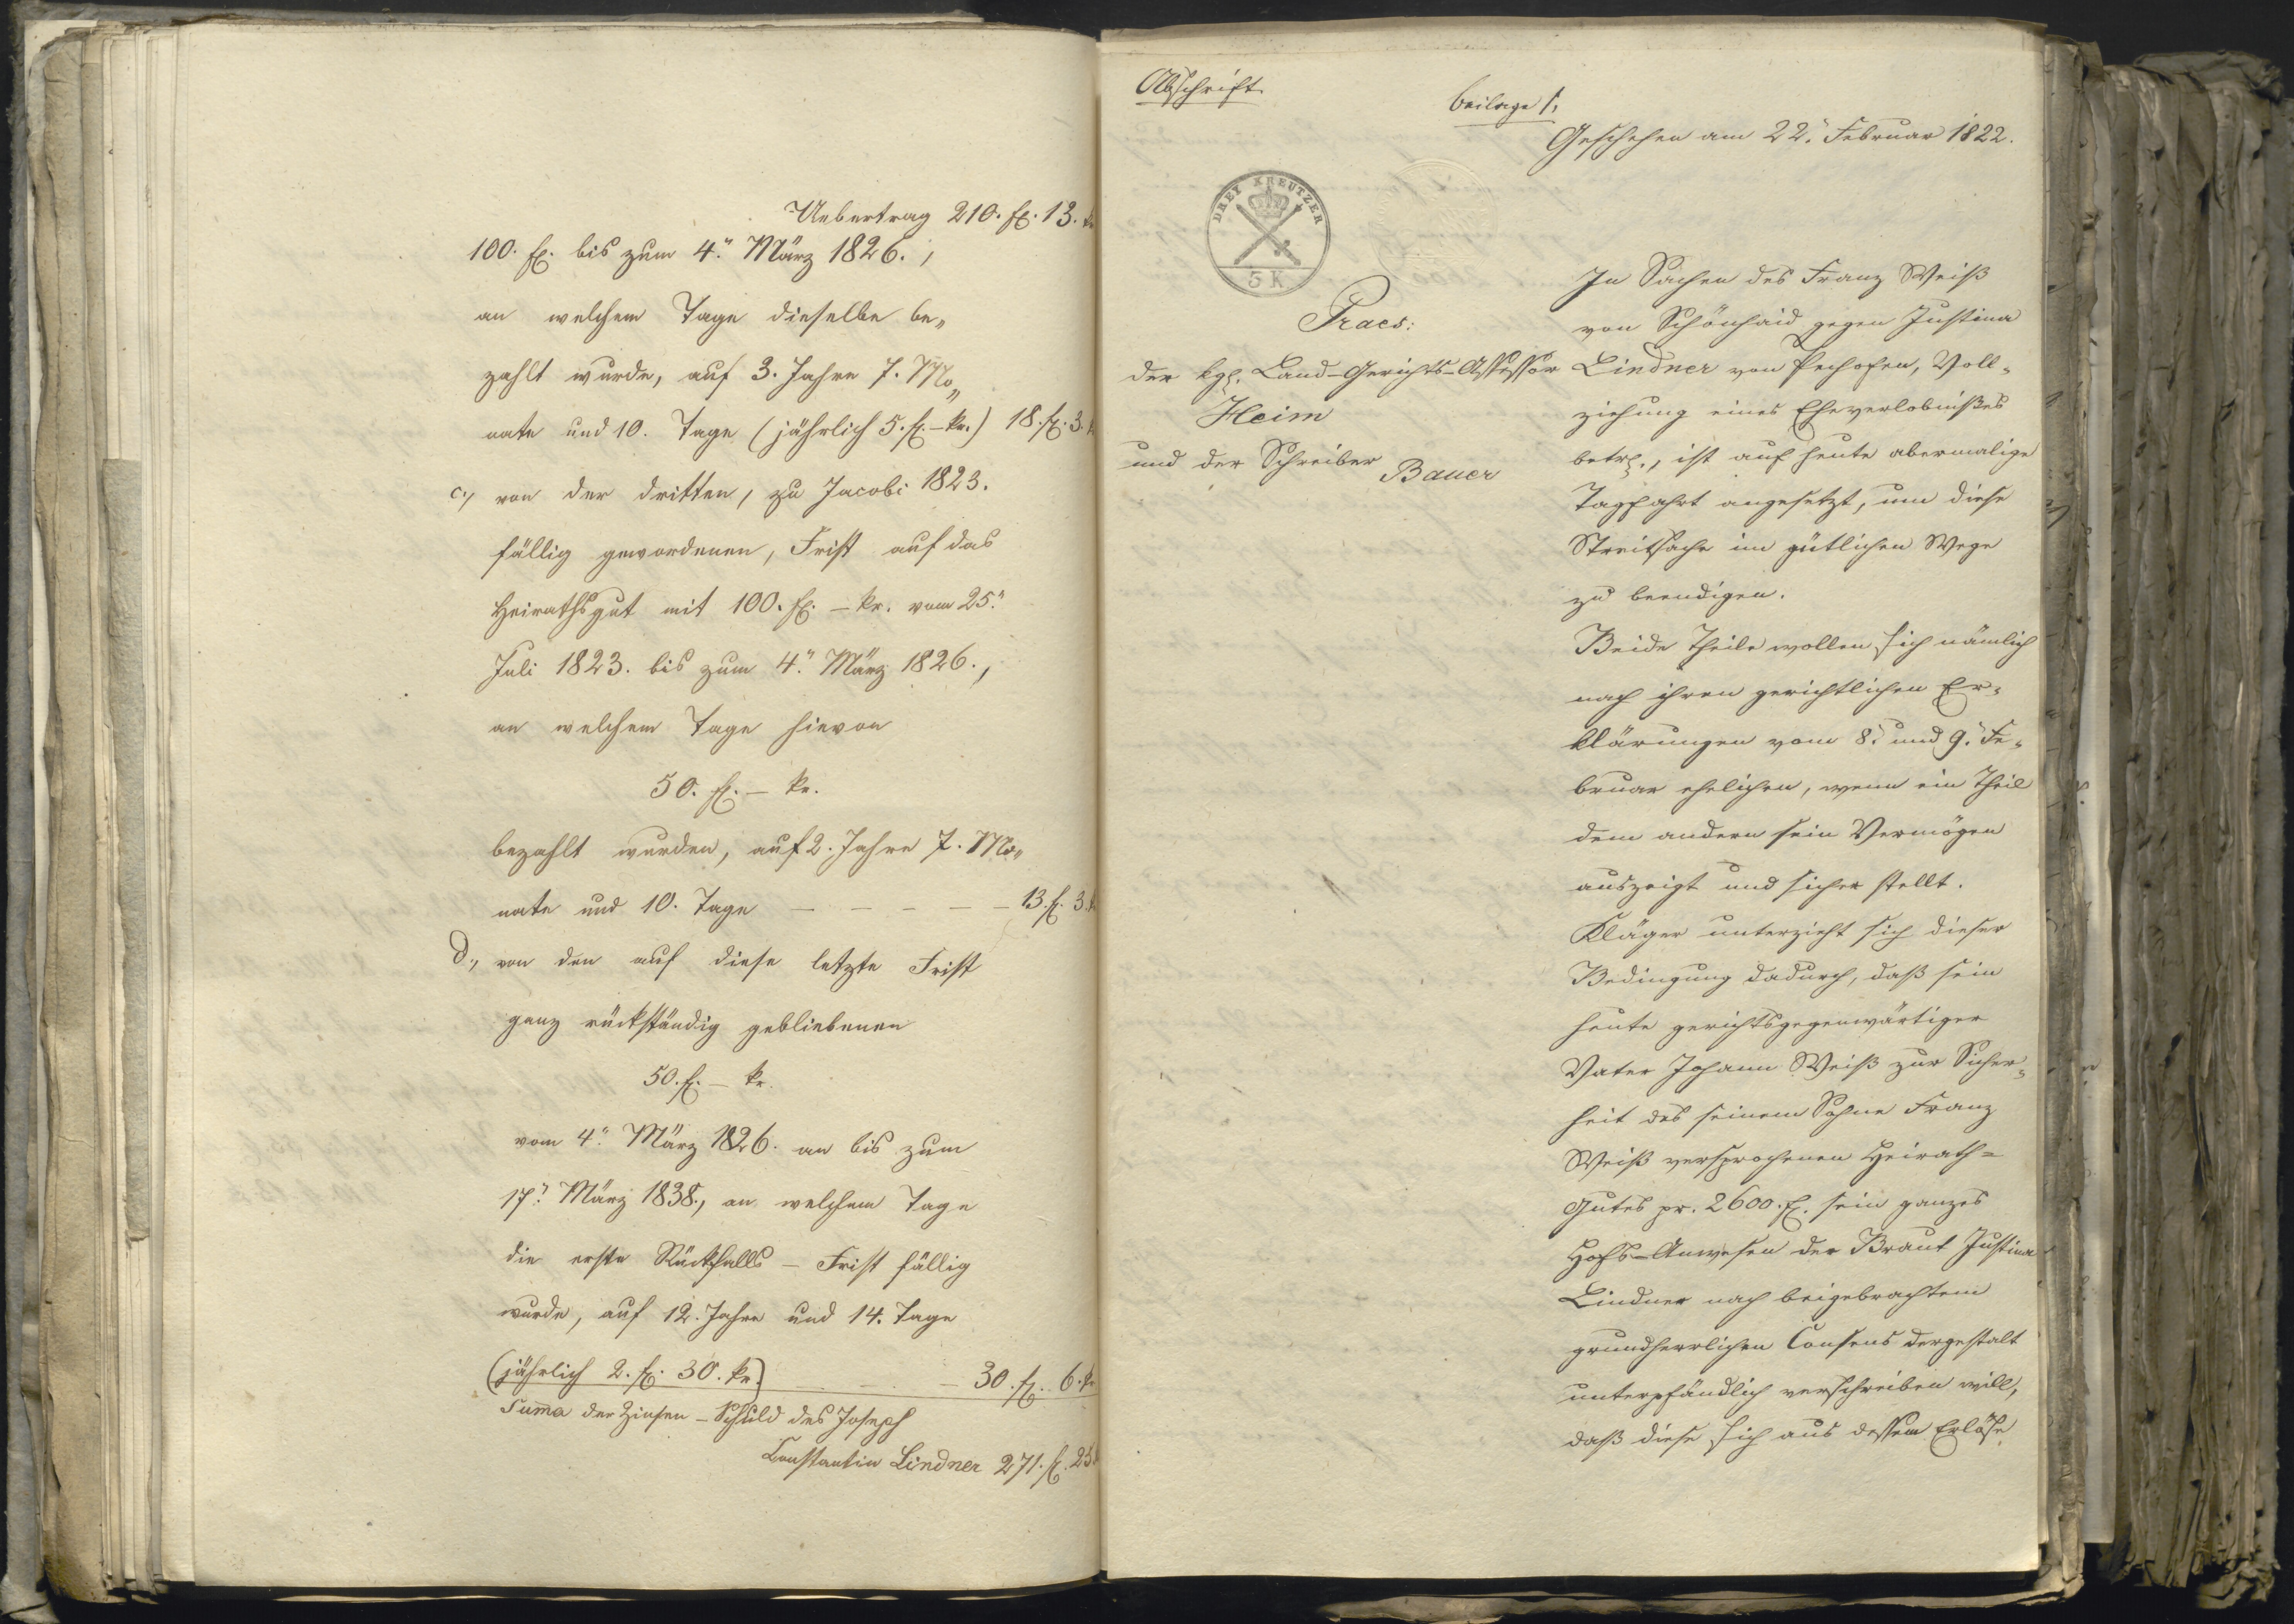 Uebertrag 210. fl. 13. k
100. fl. bis zum 4.n März 1826.,
an welchem Tage dieselbe be„
zahlt wurde, auf 3. Jahre 7. Mo„
nate und 10. Tage (jährlich 5. fl. – kr.) 18. fl. 3. k
c., von der dritten, zu Jacobi 1823.
fällig gewordenen, Frist auf das
Heirathsgut mit 100. fl. – kr. vom 25.n
Juli 1823. bis zum 4.n März 1826.,
an welchem Tage hievon
50. fl. – kr.
bezahlt wurden, auf 2. Jahre 7. Mo„
nate und 10. Tage – – – – – 13. fl. 3. k
d., von den auf diese letzte Frist
ganz rückständig gebliebenen
50. fl. – kr.
vom 4.n März 1826. an bis zum
17.n März 1838., an welchem Tage
die erste Rückfalls – Frist fällig
wurde, auf 12. Jahre und 14. Tage
(jährlich 2. fl. 30. kr.) 30. fl. 6. kr
Summa der Zinsen – Schuld des Joseph
Constantin Lindner 271. fl. 25
Abschrift.
Beilage 1.
Geschehen am 22. Februar 1822.
DREY KREUTZER
3 K
Praes:
der kgl. Land-Gerichts-Assessor
Heim
und der Schreiber Bauer
In Sachen des Franz Weiß
von Schönhaid gegen Justina
Lindner von Pechofen, Voll-
ziehung eines Eheverlobnißes
betrf., ist auf heute abermalige
Tagsfahrt angesetzt, um diese
Streitsache im gütlichen Wege
zu beendigen.
Beide Theile wollen sich nämlich
nach ihren gerichtlichen Er-
klärungen vom 8. und 9. Fe-
bruar ehelichen, wenn ein Theil
dem andern sein Vermögen
auszeigt und sicher stellt.
Kläger unterzieht sich dieser
Bedingung dadurch, daß sein
heute gerichtsgegenwärtiger
Vater Johann Weiß zur Sicher-
heit des seinem Sohne Franz
Weiß versprochenen Heirath=
Gutes pr. 2600. fl. sein ganzes
Hofs-Anwesen der Braut Justina
Lindner nach beigebrachtem
grundherrlichen Consens dergestalt
unterpfändlich verschreiben will,
daß diese sich aus dessen Erlöse